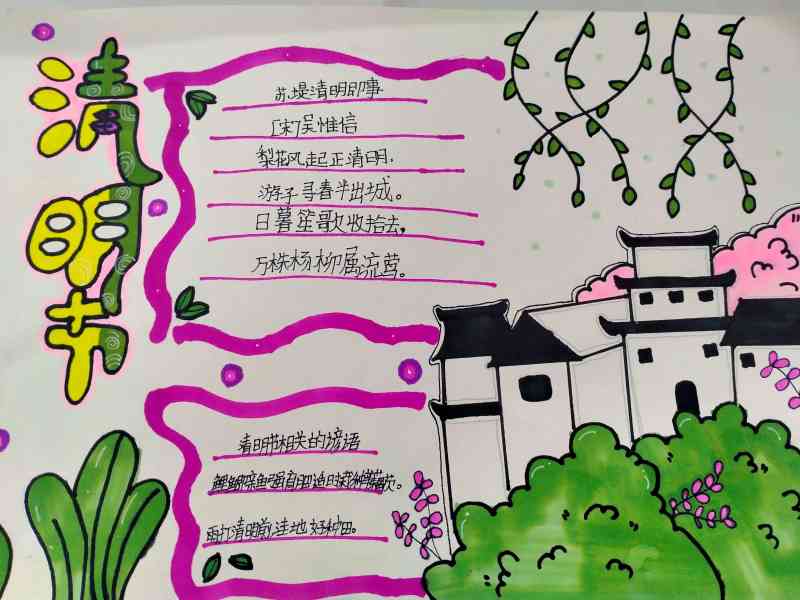 清明节
苏堤清明即事
[宋]吴惟信
梨花风起正清明.
游子寻春半出城。
日暮笙歌收拾去,
万株杨柳属流莺。
清明节相关的谚语
雨打清明前,洼地好种田。